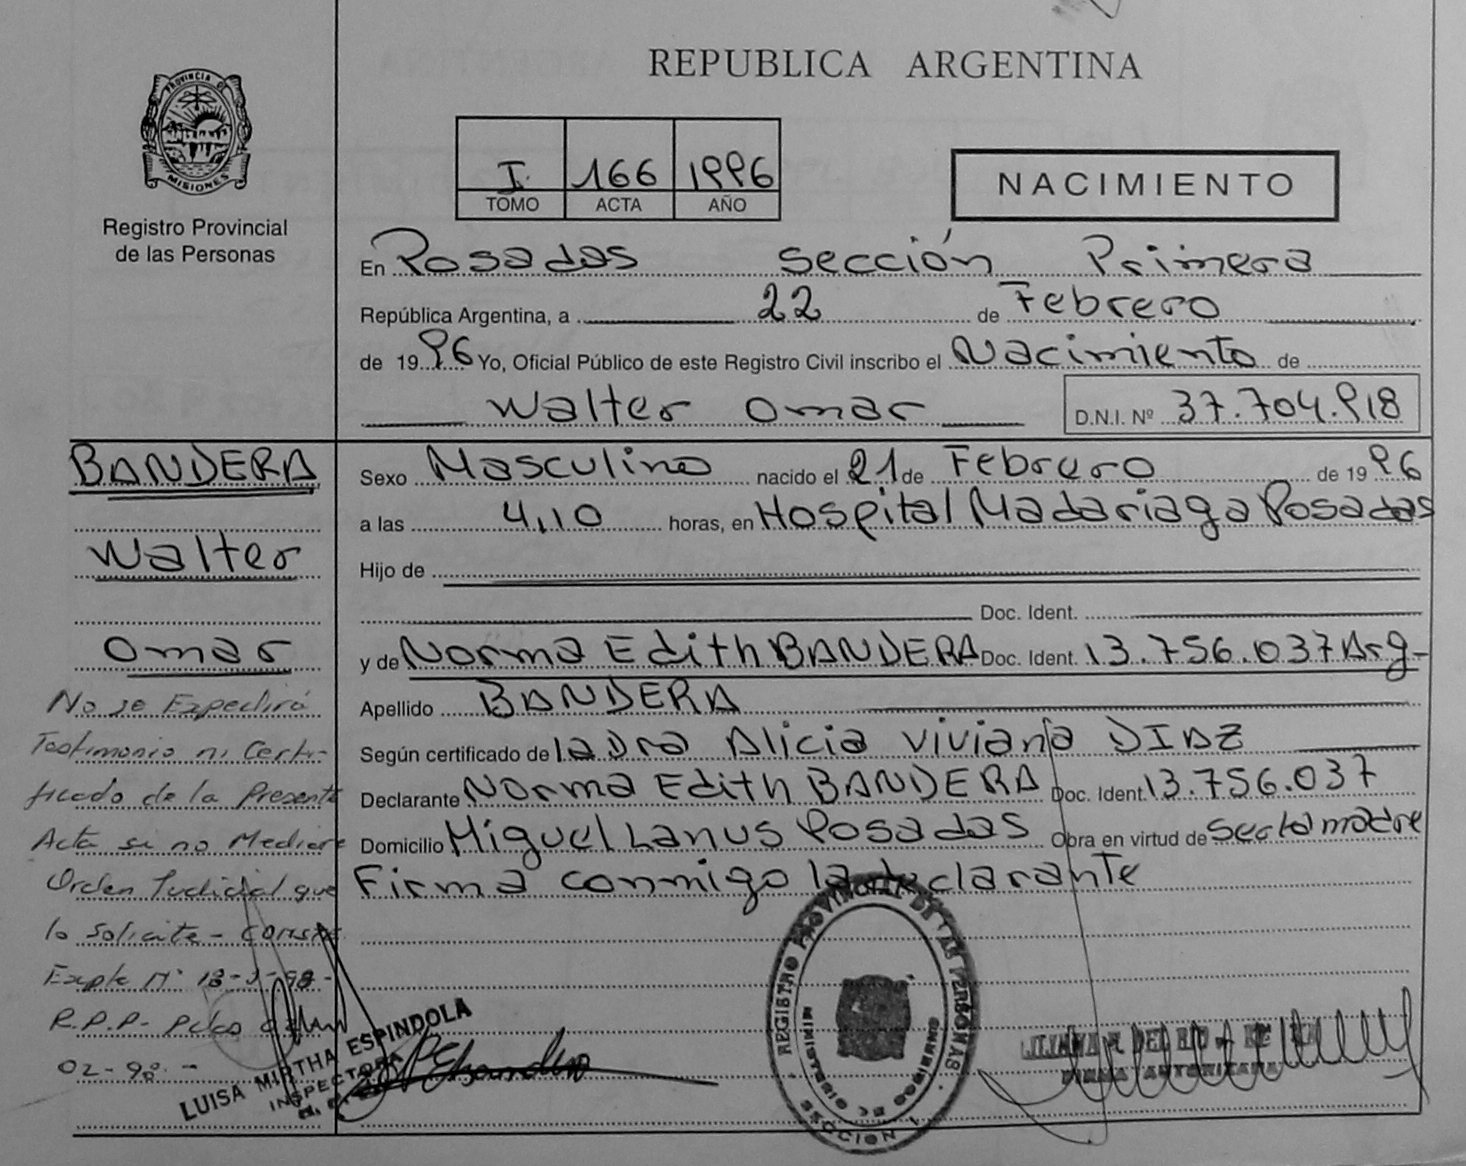 REPUBLICA ARGENTINA
PROVINCIA DE
MISIONES
Registro Provincial
de las Personas
I 166 1996
TOMO ACTA AÑO
NACIMIENTO
En Posadas sección Primera
República Argentina, a 22 de Febrero
de 1996 Yo, Oficial Público de este Registro Civil inscribo el Nacimiento de
Walter Omar D.N.I. Nº 37.704.918
BANDERA
Walter
Omar
No se Expedirá
Testimonio ni Certi-
ficado de la Presente
Acta si no Mediere
Orden Judicial que
lo Solicite -
Expte Nº
R.P.P-
02-98 -
Sexo Masculino nacido el 21 de Febrero de 1996
a las 4,10 horas, en Hospital Madariaga Posadas
Hijo de
Doc. Ident.
y de Norma Edith BANDERA Doc. Ident. 13.756.037 Arg-
Apellido BANDERA
Según certificado de la Dra Alicia Viviana DIAZ
Declarante Norma Edith BANDERA Doc. Ident. 13.756.037
Domicilio Miguel Lanus Posadas Obra en virtud de ser la madre
Firma conmigo la declarante
LUISA MIRTHA ESPINDOLA
INSPECTORA
REGISTRO PROVINCIAL DE LAS PERSONAS
MINISTERIO DE GOBIERNO
SECCION 1
FIRMA AUTORIZADA